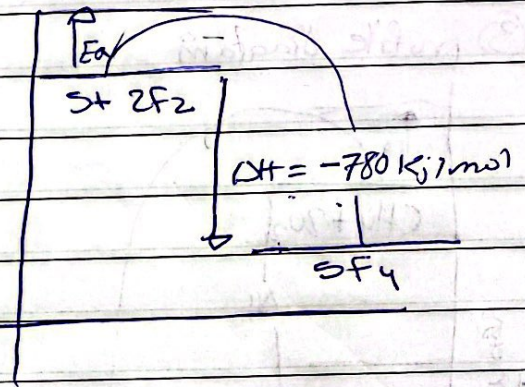 Ea
S+ 2F2
ΔH = -780 Kj/mol
SF4